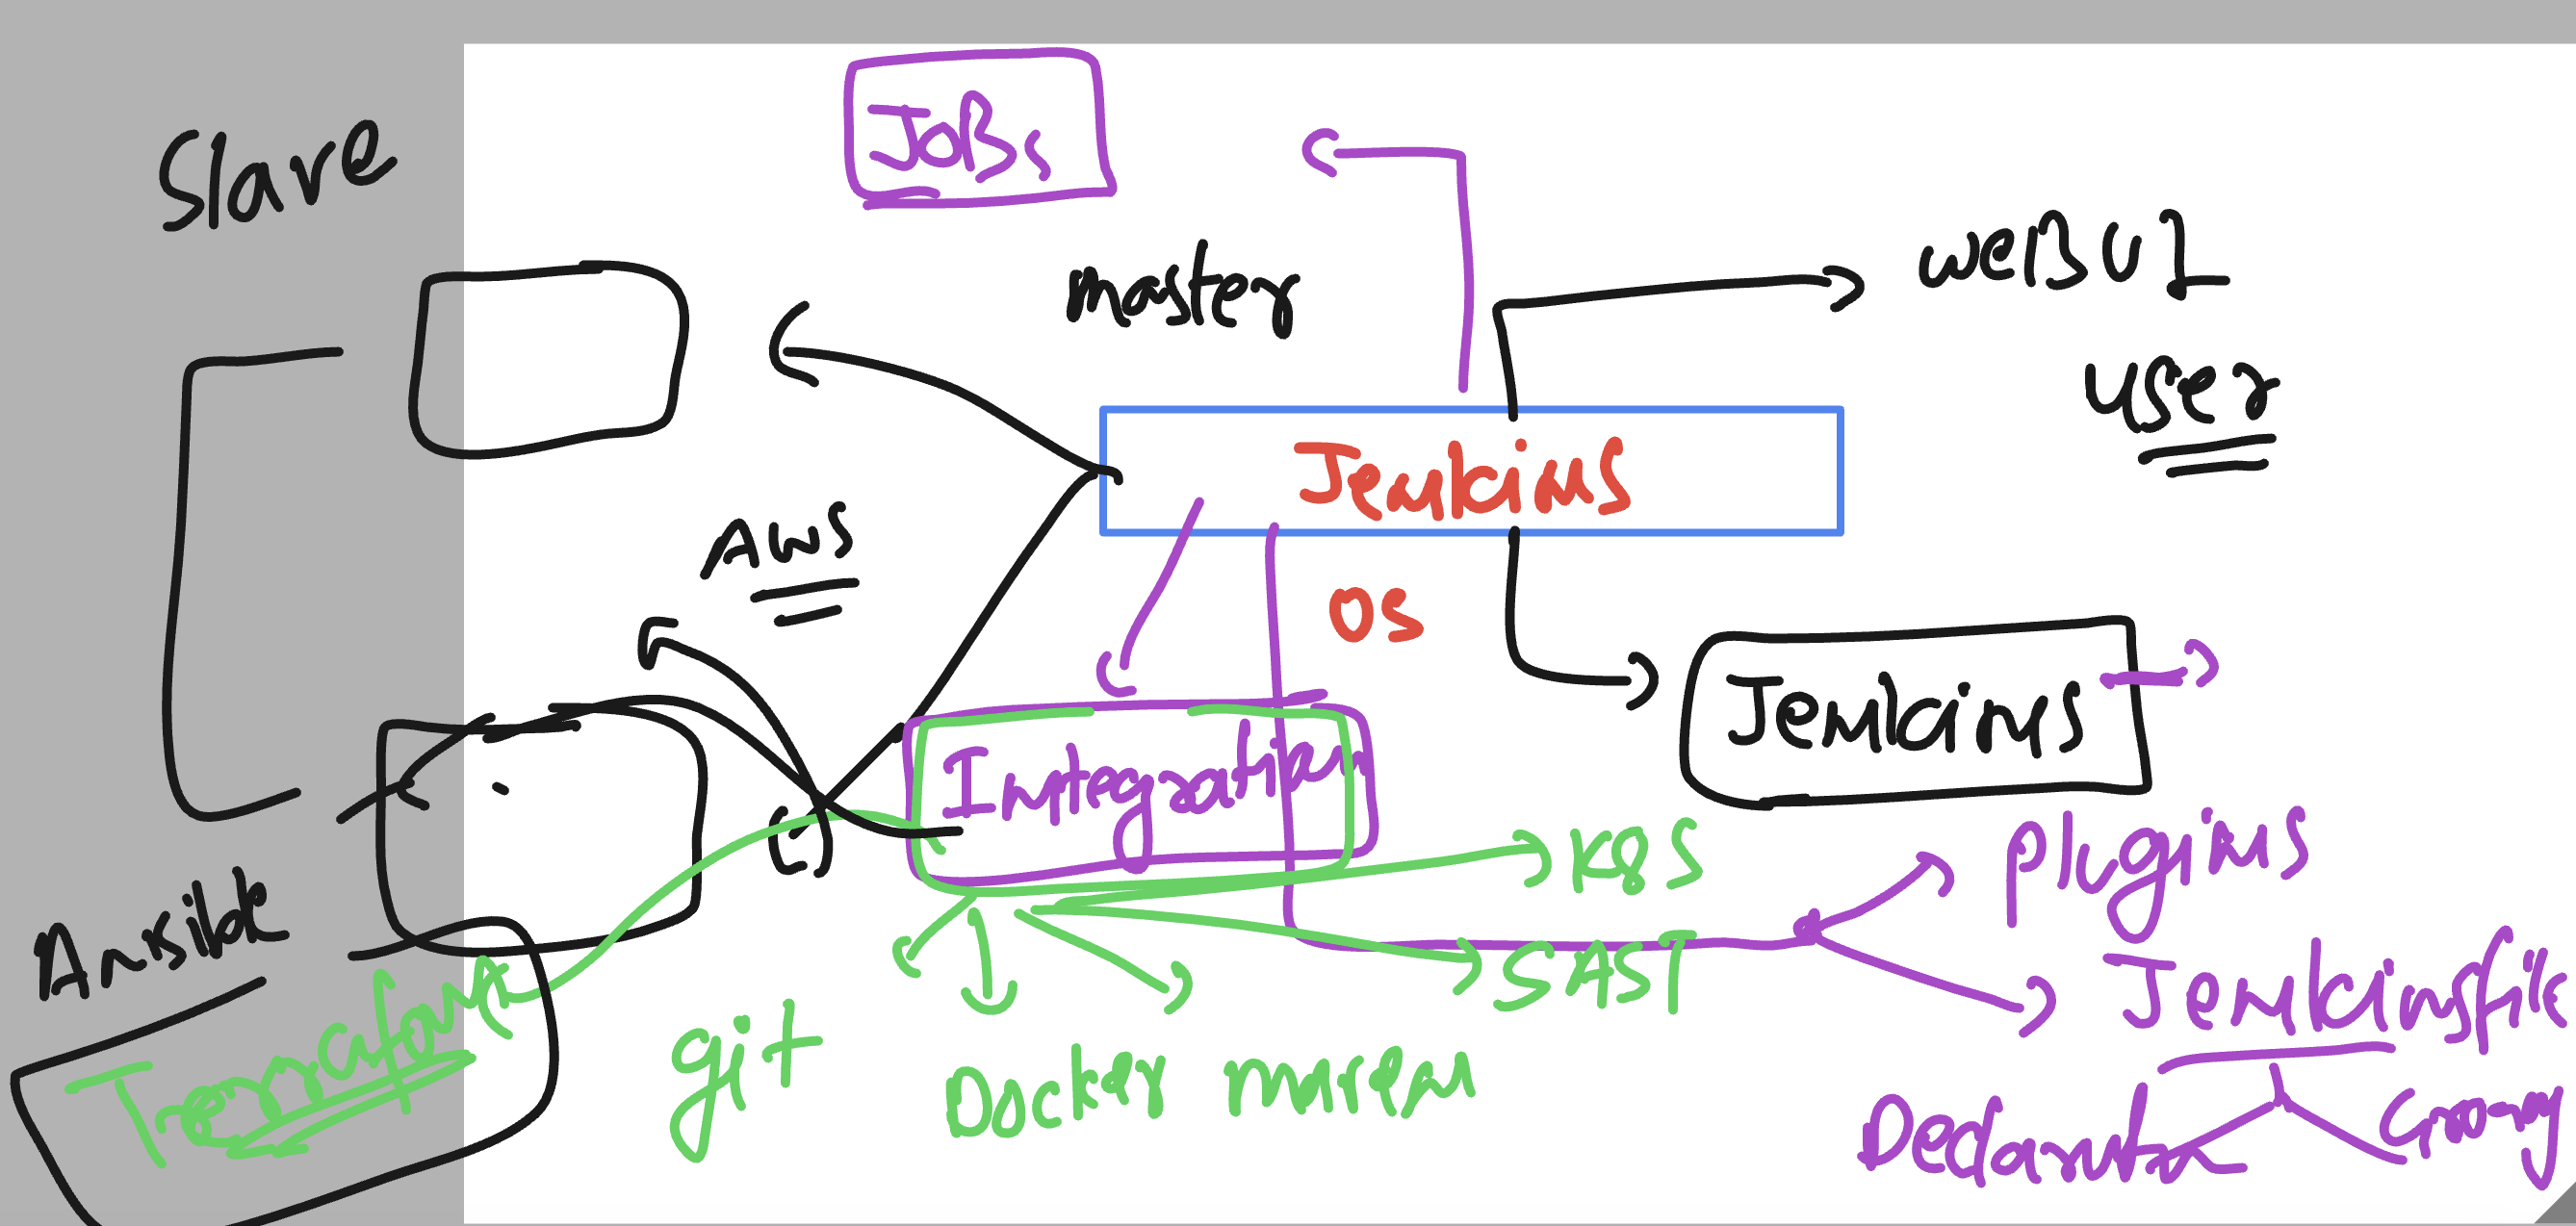 JOBs
Slave
master
WEB UI
user
Jenkins
AWS
OS
Jenkins
Integration
K8S
plugins
Ansible
SAST
Jenkinsfile
Terraform
git
Docker maven
Groovy